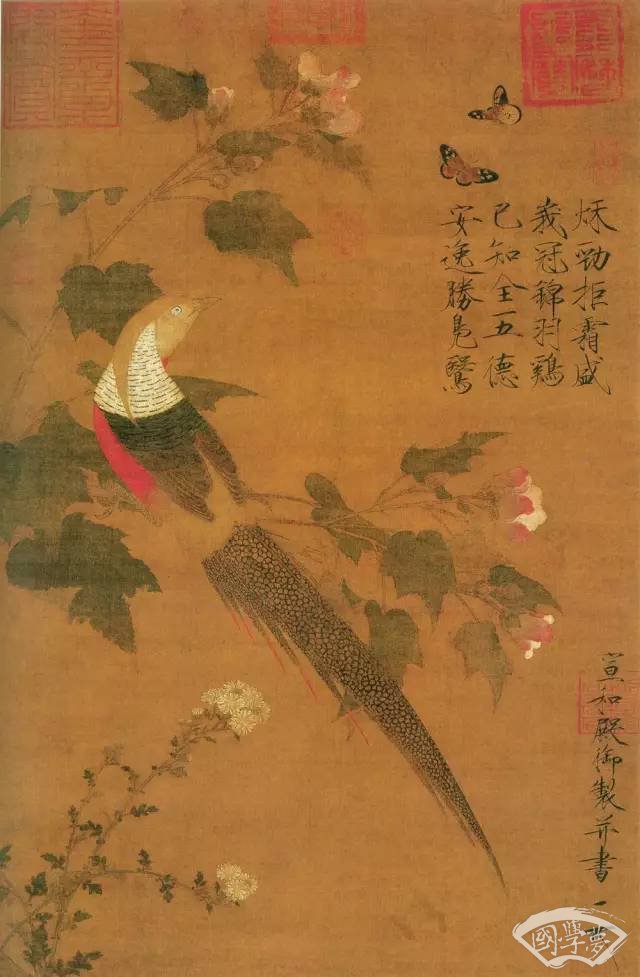 秌勁拒霜盛
峩冠錦羽鷄
已知全五德
安逸勝鳧鷖
宣和殿御製并書
國學夢